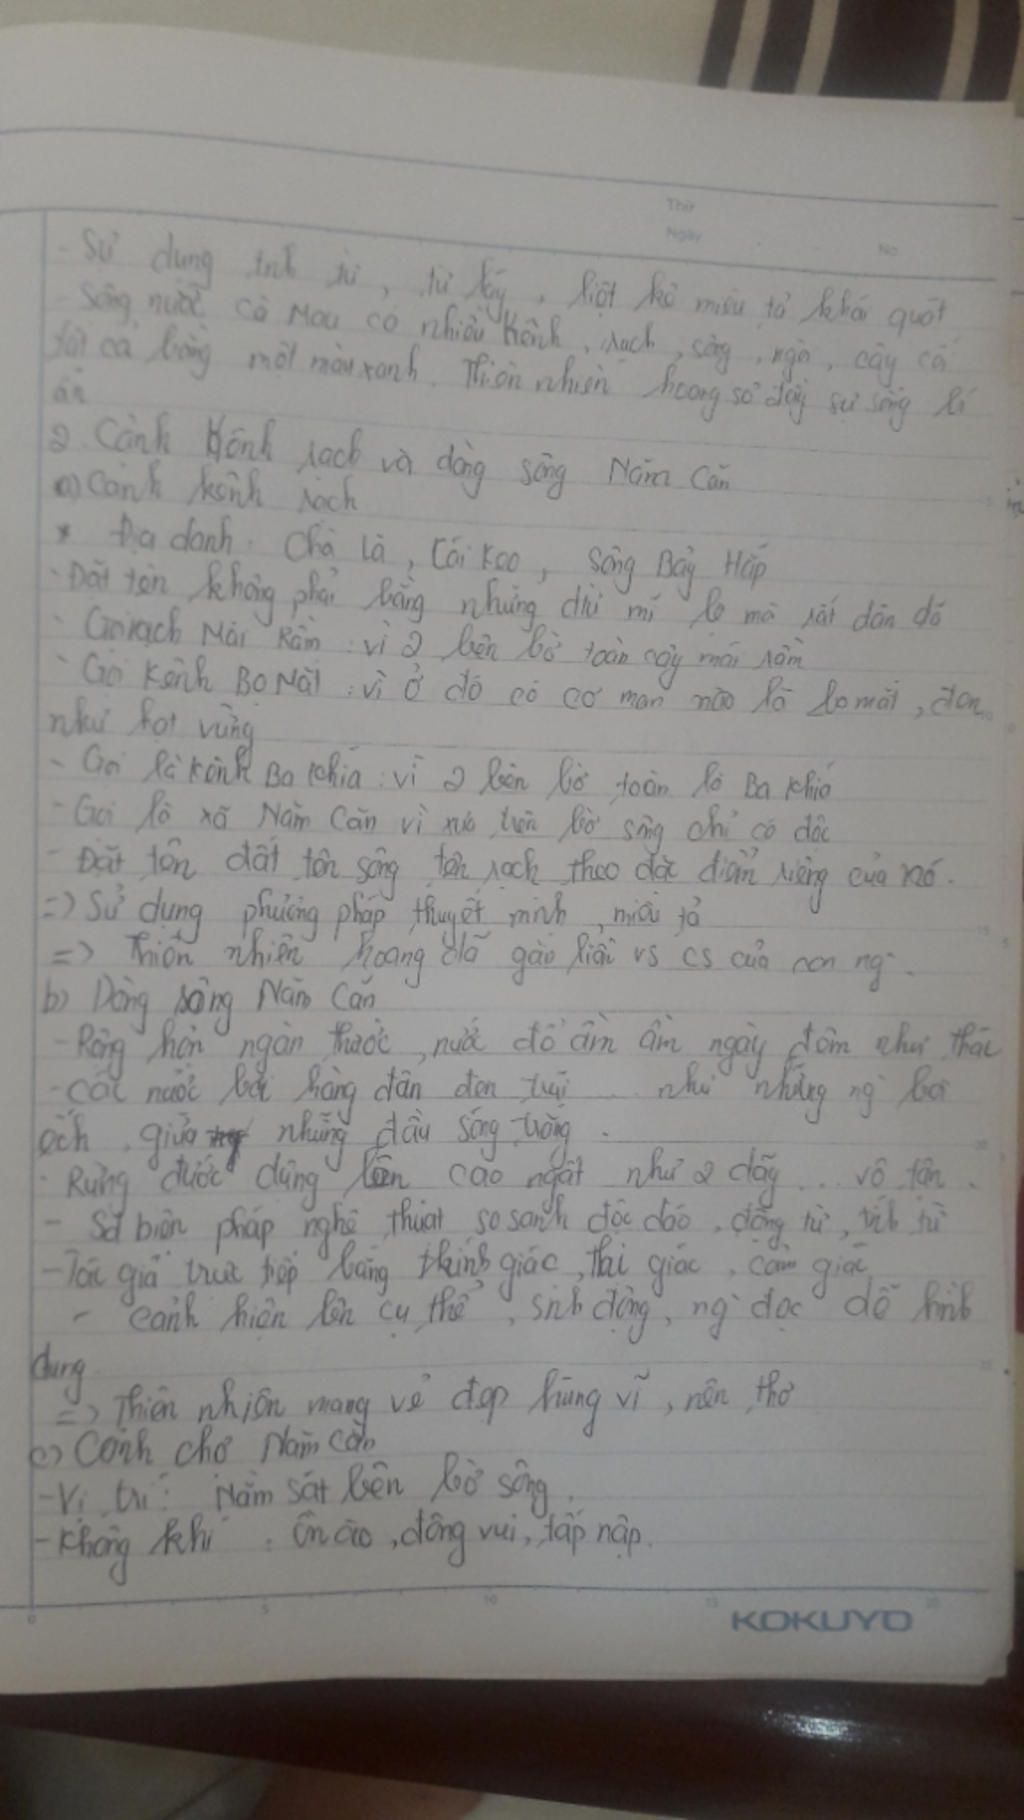 Thứ
Ngày No
- Sử dụng tính từ, từ láy, liệt kê miêu tả khái quát
- Sông nước Cà Mau có nhiều kênh, rạch, sông, ngòi, cây cối
tất cả bằng một màu xanh. Thiên nhiên hoang sơ đầy sự sống bí
ẩn
2. Cảnh kênh rạch và dòng sông Năm Căn
a) Cảnh kênh rạch
* Địa danh: Chà Là, Cái Keo, sông Bảy Háp
- Đặt tên không phải bằng những mĩ lệ mà rất dân dã
- Gọi rạch Mái Rầm : vì 2 bên bờ toàn cây mái rầm
- Gọi kênh Bọ Mắt : vì ở đó có cơ man nào là bọ mắt, đen
như hạt vừng
- Gọi là kênh Ba Khía : vì 2 bên bờ toàn là Ba Khía
- Gọi là xã Năm Căn vì trên bờ sông chỉ có độc
- Đặt tên đất tên sông tên rạch theo đặc điểm riêng của nó.
=> Sử dụng phương pháp thuyết minh, miêu tả
=> Thiên nhiên hoang dã gào liền vs cs của con ng`.
b) Dòng sông Năm Căn
- Rộng hơn ngàn thước, nước đổ ầm ầm ngày đêm như thác
- Cái nước bơi hàng đàn đen trũi ... như những ng bơi
ếch giữa những đầu sóng trắng.
- Rừng đước dựng lên cao ngất như 2 dãy ... vô tận.
- Sd biện pháp nghệ thuật so sánh độc đáo, động từ, tính từ
- Tác giả trực tiếp bằng thính giác, thị giác, cảm giác
- cảnh hiện lên cụ thể, sinh động, ng` đọc dễ hình
dung.
=> Thiên nhiên mang vẻ đẹp hùng vĩ, nên thơ
c) Cảnh chợ Năm Căn
- Vị trí: Nằm sát bên bờ sông.
- Không khí : ồn ào, đông vui, tấp nập.
KOKUYO